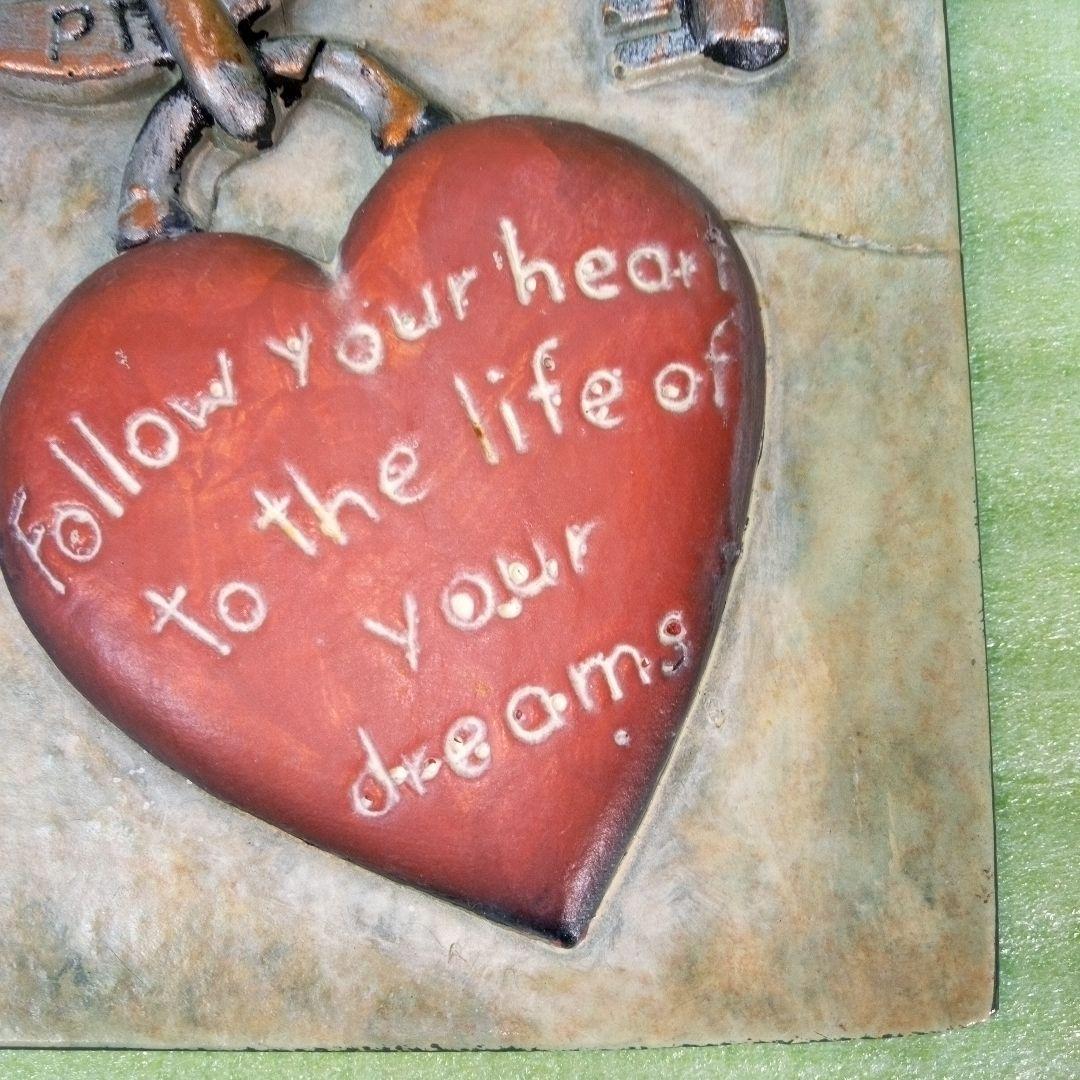 Follow your heart
to the life of
your
dreams